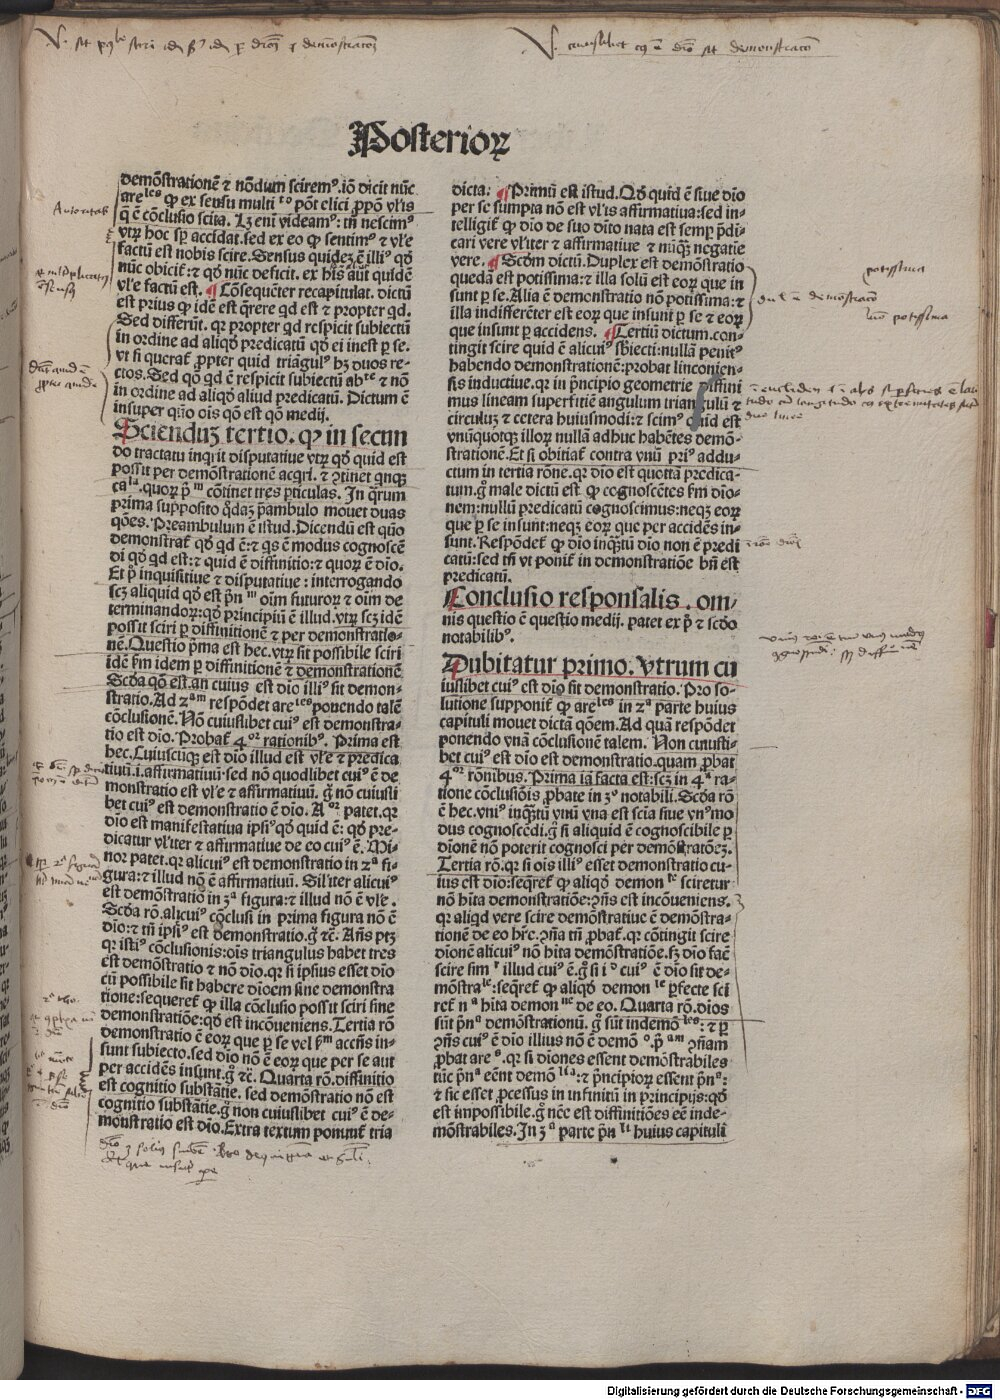 Posterioꝝ
demõstrationẽ ⁊ nõdum sciremꝰ.iõ dicit nũc
areˡᵉˢ ꝙ ex sensu multiᵗᵒ põt elici ꝓpõ vl'is
q̃ ẽ cõclusio scita. Lꝫ eni videamꝰ: tñ nescimꝰ
vtꝝ hoc sꝑ accidat.sed ex eo ꝙ sentimꝰ ⁊ vl'e
factũ est nobis scire. Sensus quidez ẽ illiꝰ qđ
nũc obicit̃: ⁊ qđ nũc deficit. ex his aũt quidẽ
vl'e factũ est. ¶ Cõsequẽter recapitulat. dictũ
est prius ꝙ idẽ est q̃rere qd est ⁊ propter qd.
Sed differũt. qꝛ propter qd respicit subiectũ
in ordine ad aliqđ predicatũ qđ ei inest ꝑ se.
vt si querat̃ ꝓpter quid triãgulꝰ hꝫ duos re-
ctos. Sed qđ qd ẽ respicit subiectũ abᵗᵉ ⁊ nõ
in ordine ad aliqđ aliud predicatũ. Dictum ẽ
insuper quõ ois qõ est qõ medij.
Scienduꝫ tertio. ꝙ in secun
do tractatu inqrit disputatiue vtꝝ qđ quid est
possit per demõstrationẽ acqri. ⁊ ↄtinet qnqꝫ
caˡᵃ.quoꝝ p̃ᵐ cõtinet tres ꝑticulas. In q̃rum
prima supposito q̃daꝫ p̃ambulo mouet duas
qões. Preambulum ẽ istud. Dicendũ est quõ
demonstrat̃ qđ qd ẽ: ⁊ qs ẽ modus cognoscẽ
di qđ qd est: ⁊ quid ẽ diffinitio: ⁊ quoꝝ ẽ dio.
Et p̃ inquisitiue ⁊ disputatiue : interrogando
scꝫ aliquid qđ est p̃nᵐ oim futuroꝝ ⁊ oim de
terminandoꝝ: qđ principiũ ẽ illud. vtꝝ scꝫ idẽ
possit sciri ꝑ diffinitionẽ ⁊ per demonstratio-
nẽ. Questio p̃ma est hec. vtꝝ sit possibile sciri
idẽ ẜm idem ꝑ diffinitionẽ ⁊ demonstrationẽ
Scđa qõ est. an cuius est dio illiꝰ sit demon-
stratio. Ad 2ᵃᵐ respõdet areˡᵉˢ ponendo talẽ
cõclusionẽ. Nõ cuiuslibet cuiꝰ est demonstra-
tio est dio. Probat̃ 4ᵒʳ rationibꝰ. Prima est
hec. Cuiuscũqꝫ est dio illud est vl'e ⁊ predica
tiuũ.i.affirmatiuũ: sed nõ quodlibet cuiꝰ ẽ de
monstratio est vl'e ⁊ affirmatiuũ. g̊ nõ cuiusli
bet cuiꝰ est demonstratio ẽ dio. Aᵒʳ patet. qꝛ
dio est manifestatiua ipsiꝰ qđ quid ẽ: qđ pre-
dicatur vl'iter ⁊ affirmatiue de eo cuiꝰ ẽ. Mi-
nor patet. qꝛ alicuiꝰ est demonstratio in 2ᵃ fi-
gura: ⁊ illud nõ ẽ affirmatiuũ. Sil'iter alicuiꝰ
est demõstratiõ in 3ᵃ figura: ⁊ illud nõ ẽ vl'e.
Scđa rõ. alicuiꝰ cõclusi in prima figura nõ ẽ
dio: ⁊ tñ ipsiꝰ est demonstratio. g̊ ⁊c̃. Añs ptꝫ
qꝛ istiꝰ cõclusionis: ois triangulus habet tres
est demõstratio ⁊ nõ dio. qꝛ si ipsius esset dio
cũ possibile sit habere dioem sine demonstra
tione: sequeret̃ ꝙ illa cõclusio possit sciri sine
demonstratiõe: qđ est incõueniens. Tertia rõ
demonstratio ẽ eoꝝ que ꝑ se vel ẜm accñs in-
sunt subiecto. sed dio nõ ẽ eoꝝ que per se aut
per accidẽs insunt. g̊ ⁊c̃. Quarta rõ. diffinitio
est cognitio substãtie. sed demonstratio nõ est
cognitio substãtie. g̊ non cuiuslibet cuiꝰ ẽ de-
monstratio est dio. Extra textum ponunt̃ tria
dicta: ¶ Primũ est istud. Qđ quid ẽ siue dio
per se sumpta nõ est vl'is affirmatiua: sed in-
telligit̃ ꝙ dio de suo dito nata est semꝑ p̃di-
cari vere vl'iter ⁊ affirmatiue ⁊ nũqꝫ negatie
vere. ¶ Scđm dictũ. Duplex est demõstratio
quedã est potissima: ⁊ illa solũ est eoꝝ que in
sunt ꝑ se. Alia ẽ demonstratio nõ potissima: ⁊
illa indifferẽter est eoꝝ que insunt ꝑ se ⁊ eoꝝ
que insunt ꝑ accidens. ¶ Tertiũ dictum. con-
tingit scire quid ẽ alicuiꝰ sbiecti: nullã penitꝰ
habendo demonstrationẽ: probat̃ linconien-
sis inductiue. qꝛ in p̃ncipio geometrie diffini
mus lineam superficiẽ angulum triangulũ ⁊
circulũ ⁊ cetera huiusmodi: ⁊ scimꝰ quid est
vnũquotqꝫ illoꝝ nullã adhuc habẽtes demõ-
strationẽ. Et si obitiat̃ contra vnũ priꝰ addu-
ctum in tertia rõne. qꝛ dio est quottã predica-
tum. g̊ male dictũ est ꝙ cognoscẽtes ẜm dio-
nem: nullũ predicatũ cognoscimus: neqꝫ eoꝝ
que ꝑ se insunt: neqꝫ eoꝝ que per accidẽs in-
sunt. Respõdet̃ ꝙ dio inq̃tũ dio non ẽ predi
catũ: sed tñ vt ponit̃ in demonstratiõe bñ est
predicatũ.
Conclusio responsalis . om-
nis questio ẽ questio medij. patet ex p̃ ⁊ scđo
notabilibꝰ.
Dubitatur primo. vtrum cu
iuslibet cuiꝰ est dio sit demonstratio. Pro so-
lutione supponit̃ ꝙ areˡᵉˢ in 2ᵃ parte huius
capituli mouet dictã qõem. Ad quã respõdet
ponendo vnã cõclusionẽ talem. Non cuiusli-
bet cuiꝰ est dio est demonstratio. quam ꝓbat
4ᵒʳ rõnibus. Prima iã facta est: scꝫ in 4ᵃ ra-
tione cõclusiõis ꝓbate in 3ᵒ notabili. Scđa rõ
ẽ hec. vniꝰ inq̃tũ vnũ vna est scia siue vnꝰ mo
dus cognoscẽdi. g̊ si aliquid ẽ cognoscibile ꝑ
dionẽ nõ poterit cognosci per demõstratõeꝫ.
Tertia rõ. qꝛ si ois illiꝰ esset demonstratio cu-
ius est dio: seqret̃ ꝙ aliqđ demonˡᵉ sciretur
nõ hita demonstratiõe: ↄñs est incõueniens.
qꝛ aliqd vere scire demõstratiue ẽ demõstra-
tionẽ de eo hr̃e. ↄña tñ ꝓbat̃. qꝛ cõtingit scire
dionẽ alicuiꝰ nõ hita demõstratiõe. sꝫ dio facẽ
scire simʳ illud cuiꝰ ẽ. g̊ si iᵒ cuiꝰ ẽ dio sit de-
mõstraˡᵉ: seqret̃ ꝙ aliqđ demonˡᵉ ꝑfecte sci
ret̃ nᵃ hita demonⁿᵉ de eo. Quarta rõ. dios
sũt p̃nᵃ demõstrationũ. g̊ sũt indemõˡᵉˢ: ⁊ ꝑ
ↄñs cuiꝰ ẽ dio illius nõ ẽ demõᵒ. p̃ᵃᵐ ↄñam
ꝓbat areˢ. qꝛ si diones essent demõstrabiles
tũc p̃nᵃ eẽnt demõˡⁱᵃ: ⁊ p̃ncipioꝝ essent p̃nᵃ:
⁊ sic esset ꝓcessus in infinitũ in principijs: qđ
est impossibile. g̊ nẽc est diffinitiões eẽ inde-
mõstrabiles. In 3ᵃ parte p̃nᵗⁱ huius capituli
potissima
nõ potissima
Digitalisierung gefördert durch die Deutsche Forschungsgemeinschaft - DFG